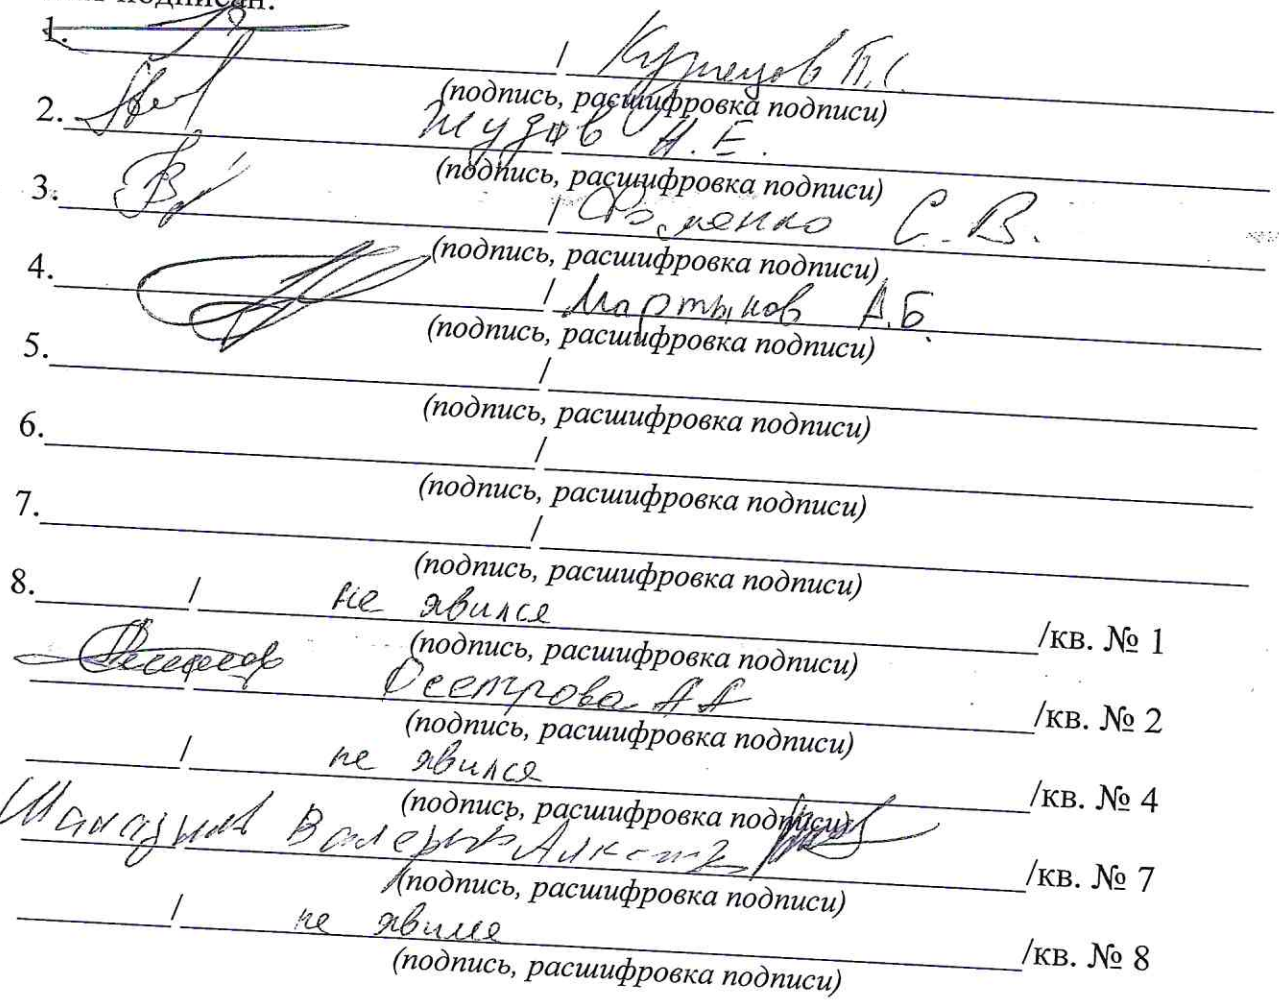 подписан:
1. / Кузнецов П.С.
(подпись, расшифровка подписи)
2. Жудов Н.Е.
(подпись, расшифровка подписи)
3. / Фоменко С.В.
(подпись, расшифровка подписи)
4. / Мартынов А.Б.
(подпись, расшифровка подписи)
5. /
(подпись, расшифровка подписи)
6. /
(подпись, расшифровка подписи)
7. /
(подпись, расшифровка подписи)
8. / не явился /кв. № 1
(подпись, расшифровка подписи)
Осетрова А А /кв. № 2
(подпись, расшифровка подписи)
/ не явился /кв. № 4
(подпись, расшифровка подписи)
/кв. № 7
(подпись, расшифровка подписи)
/ не явился /кв. № 8
(подпись, расшифровка подписи)